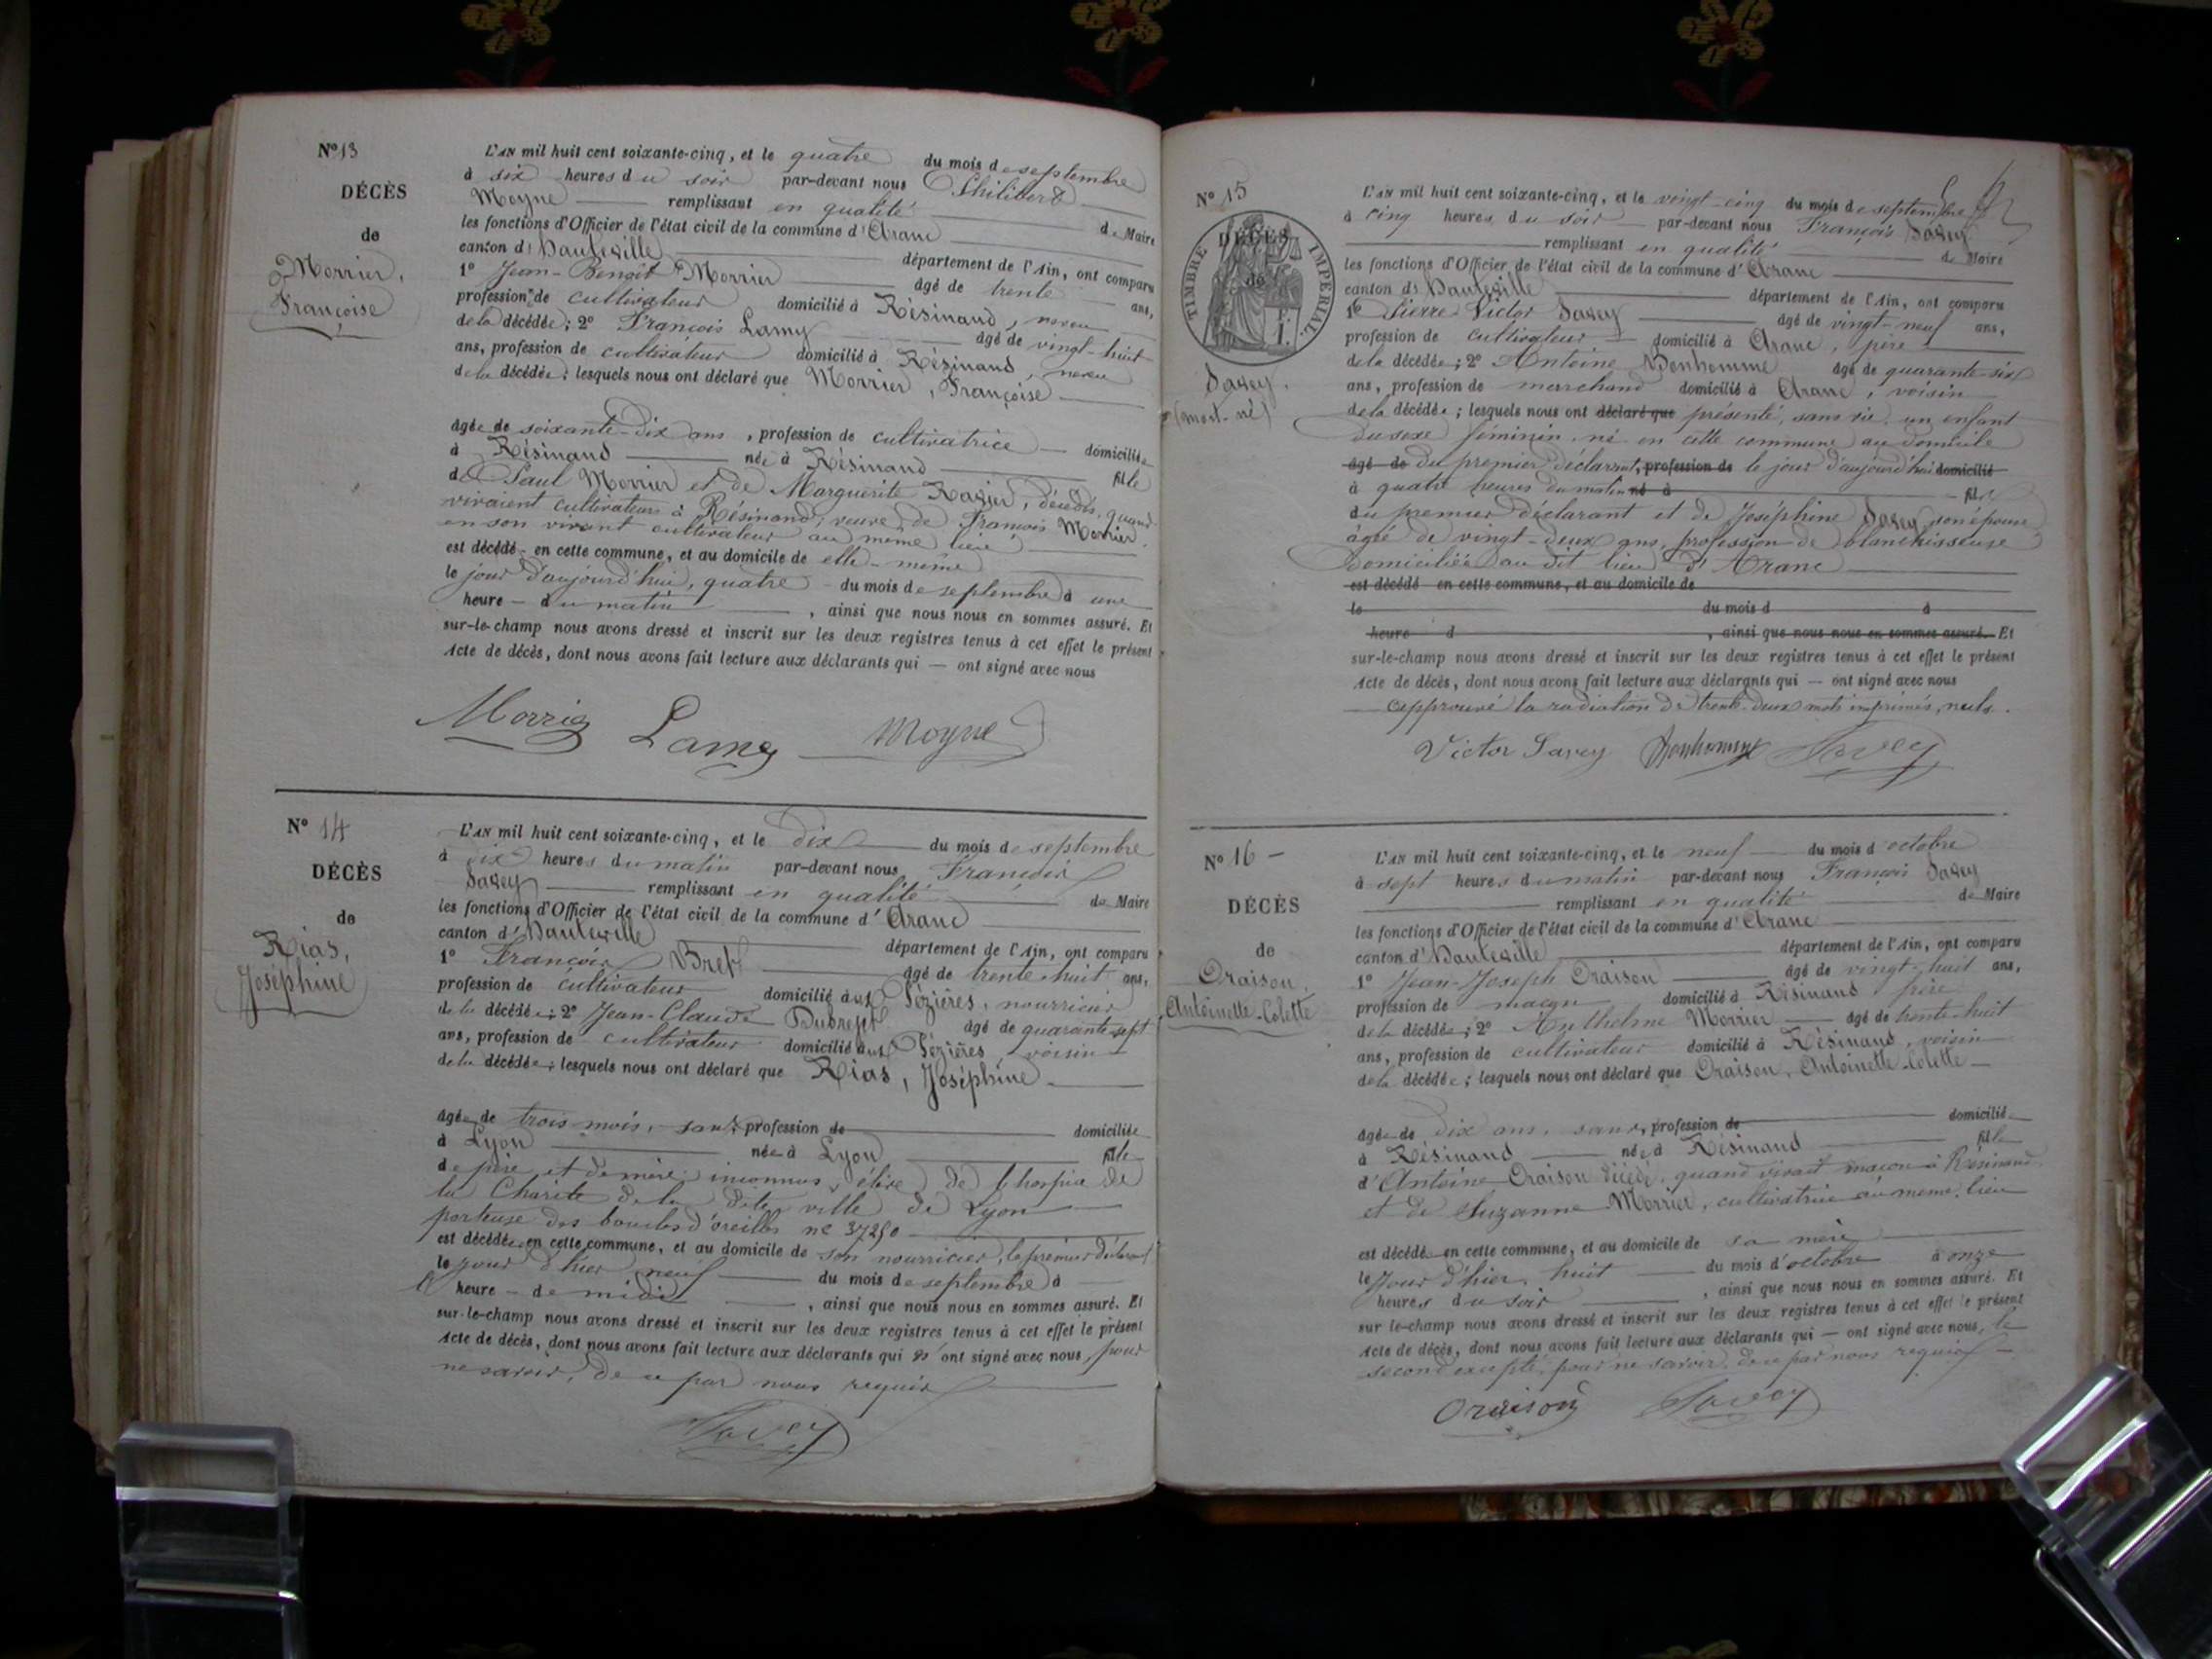 N° 13
DÉCÈS
de
Morrier,
Françoise
L'AN mil huit cent soixante-cinq, et le quatre du mois de septembre
à six heures du soir par-devant nous Philibert
Moyne remplissant en qualité de Maire
les fonctions d'Officier de l'état civil de la commune d'Aranc
canton d'Hauteville département de l'Ain, ont comparu
1° Jean-Benoît Morrier âgé de trente ans,
profession de cultivateur domicilié à Résinand, neveu
de la décédée; 2° François Lamy âgé de vingt-huit
ans, profession de cultivateur domicilié à Résinand, neveu
de la décédée; lesquels nous ont déclaré que Morrier, Françoise
âgée de soixante-dix ans, profession de cultivatrice domiciliée
à Résinand née à Résinand fille
de Paul Morrier et de Marguerite Ravier, décédés, quand
vivaient cultivateurs à Résinand; veuve de François Morrier
en son vivant cultivateur au même lieu
est décédé en cette commune, et au domicile de elle-même
le jour d'aujourd'hui, quatre du mois de septembre à une
heure du matin, ainsi que nous nous en sommes assuré. Et
sur-le-champ nous avons dressé et inscrit sur les deux registres tenus à cet effet le présent
Acte de décès, dont nous avons fait lecture aux déclarants qui — ont signé avec nous
Morrier Lamy Moyne
N° 14
DÉCÈS
de
Rias,
Joséphine
L'AN mil huit cent soixante-cinq, et le dix du mois de septembre
à dix heures du matin par-devant nous François
Savey remplissant en qualité de Maire
les fonctions d'Officier de l'état civil de la commune d'Aranc
canton d'Hauteville département de l'Ain, ont comparu
1° François Bret âgé de trente-huit ans,
profession de cultivateur domicilié aux Pézières, nourricier
de la décédée; 2° Jean-Claude Dubreuil âgé de quarante-sept
ans, profession de cultivateur domicilié aux Pézières, voisin
de la décédée; lesquels nous ont déclaré que Rias, Joséphine
âgée de trois mois, sans profession de domiciliée
à Lyon née à Lyon fille
de père et de mère inconnus, élève de l'hospice de
la Charité de la dite ville de Lyon
porteuse des boucles d'oreilles n° 37250
est décédée en cette commune, et au domicile de son nourricier, le premier déclarant
le jour d'hier neuf du mois de septembre à
l'heure de midi, ainsi que nous nous en sommes assuré. Et
sur-le-champ nous avons dressé et inscrit sur les deux registres tenus à cet effet le présent
Acte de décès, dont nous avons fait lecture aux déclarants qui n'ont signé avec nous, pour
ne savoir, de ce par nous requis
Savey
N° 15
DÉCÈS
de
TIMBRE IMPÉRIAL
Savey.
(mort-né)
L'AN mil huit cent soixante-cinq, et le vingt-cinq du mois de septembre
à cinq heures du soir par-devant nous François Savey
remplissant en qualité de Maire
les fonctions d'Officier de l'état civil de la commune d'Aranc
canton d'Hauteville département de l'Ain, ont comparu
1° Pierre Victor Savey âgé de vingt-neuf ans,
profession de cultivateur domicilié à Aranc, père
de la décédée; 2° Antoine Bonhomme âgé de quarante-six
ans, profession de marchand domicilié à Aranc, voisin
de la décédée; lesquels nous ont déclaré que présenté, sans vie, un enfant
du sexe féminin né en cette commune au domicile
âgé de du premier déclarant, profession de le jour d'aujourd'hui domicilié
à quatre heures du matin né à fils
du premier déclarant et de Joséphine Savey son épouse
âgée de vingt-deux ans, profession de blanchisseuse
domiciliée au dit lieu d'Aranc
est décédé en cette commune, et au domicile de
le du mois d à
heure d, ainsi que nous nous en sommes assuré. Et
sur-le-champ nous avons dressé et inscrit sur les deux registres tenus à cet effet le présent
Acte de décès, dont nous avons fait lecture aux déclarants qui — ont signé avec nous
Approuvé la radiation de trente-deux mots imprimés, nuls.
Victor Savey Bonhomme Savey
N° 16
DÉCÈS
de
Oraison,
Antoinette-Colette
L'AN mil huit cent soixante-cinq, et le neuf du mois d'octobre
à sept heures du matin par-devant nous François Savey
remplissant en qualité de Maire
les fonctions d'Officier de l'état civil de la commune d'Aranc
canton d'Hauteville département de l'Ain, ont comparu
1° Jean-Joseph Oraison âgé de vingt-huit ans,
profession de maçon domicilié à Résinand, frère
de la décédée; 2° Anthelme Morrier âgé de trente-huit
ans, profession de cultivateur domicilié à Résinand, voisin
de la décédée; lesquels nous ont déclaré que Oraison, Antoinette-Colette
âgée de dix ans, sans, profession de domicilié
à Résinand née à Résinand fille
d'Antoine Oraison décédé, quand vivait maçon à Résinand
et de Suzanne Morrier, cultivatrice au même lieu
est décédée en cette commune, et au domicile de sa mère
le jour d'hier, huit du mois d'octobre à onze
heures du soir, ainsi que nous nous en sommes assuré. Et
sur le-champ nous avons dressé et inscrit sur les deux registres tenus à cet effet le présent
Acte de décès, dont nous avons fait lecture aux déclarants qui — ont signé avec nous, le
second excepté, pour ne savoir, de ce par nous requis
Oraison Savey